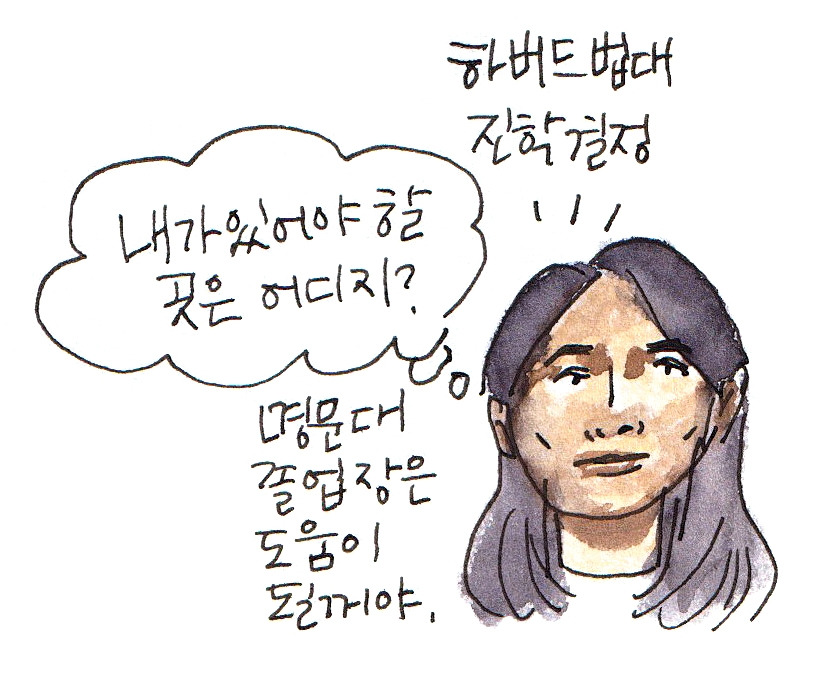 하버드법대
진학결정
내가있어야 할
곳은 어디지?
명문대
졸업장은
도움이
될꺼야.